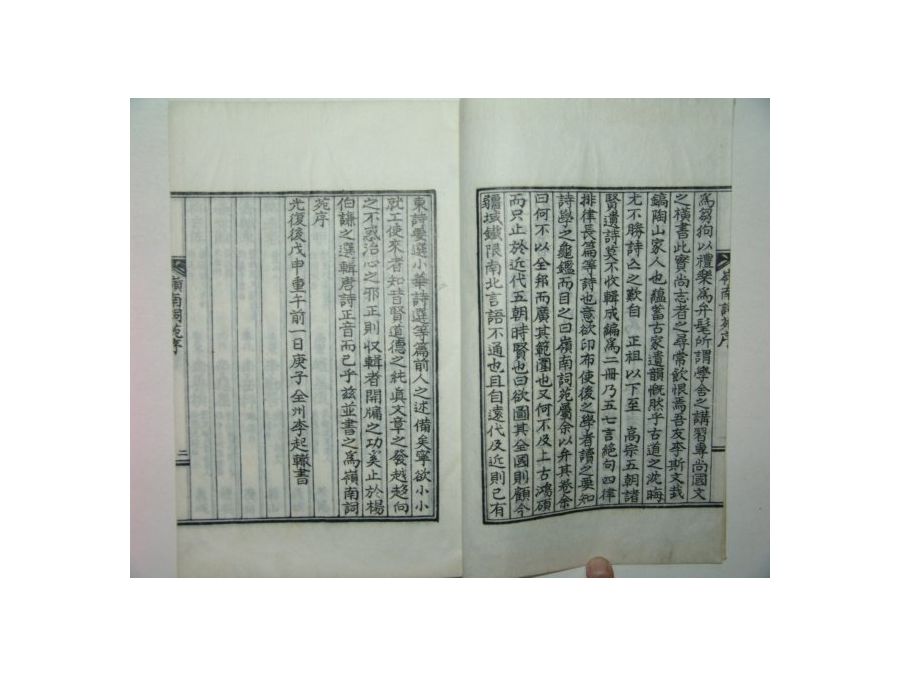 爲芻狗以禮樂爲弁髦所謂學舍之講習專尚國文
之橫書此實尚志者之尋常飮恨焉吾友李斯文哉
鎬陶山家人也蘊蓄古家遺韻慨然乎古道之沈晦
尤不勝詩亡之歎自 正祖以下至 高宗五朝諸
賢遺詩莫不收輯成編爲二冊乃五七言絶句四律
排律長篇等詩也意欲印布使後之學者讀之要知
詩學之龜鑑而目之曰嶺南詞苑屬余以弁其卷余
曰何不以全邦而廣其範圍也又何不及上古鴻碩
而只止於近代五朝時賢也曰欲圖其全國則顧今
疆域鐵限南北言語不通也且自遠代及近則已有
嶺南詞苑序
東詩要選小華詩選等篇前人之述備矣寧欲小小
就工使來者知昔賢道德之純眞文章之發越趍向
之不惑治心之邪正則收輯者開牖之功矣止於楊
伯謙之選輯唐詩正音而已乎玆並書之爲嶺南詞
苑序
光復後戊申重午前一日庚子全州李起轍書
嶺南詞苑序
二